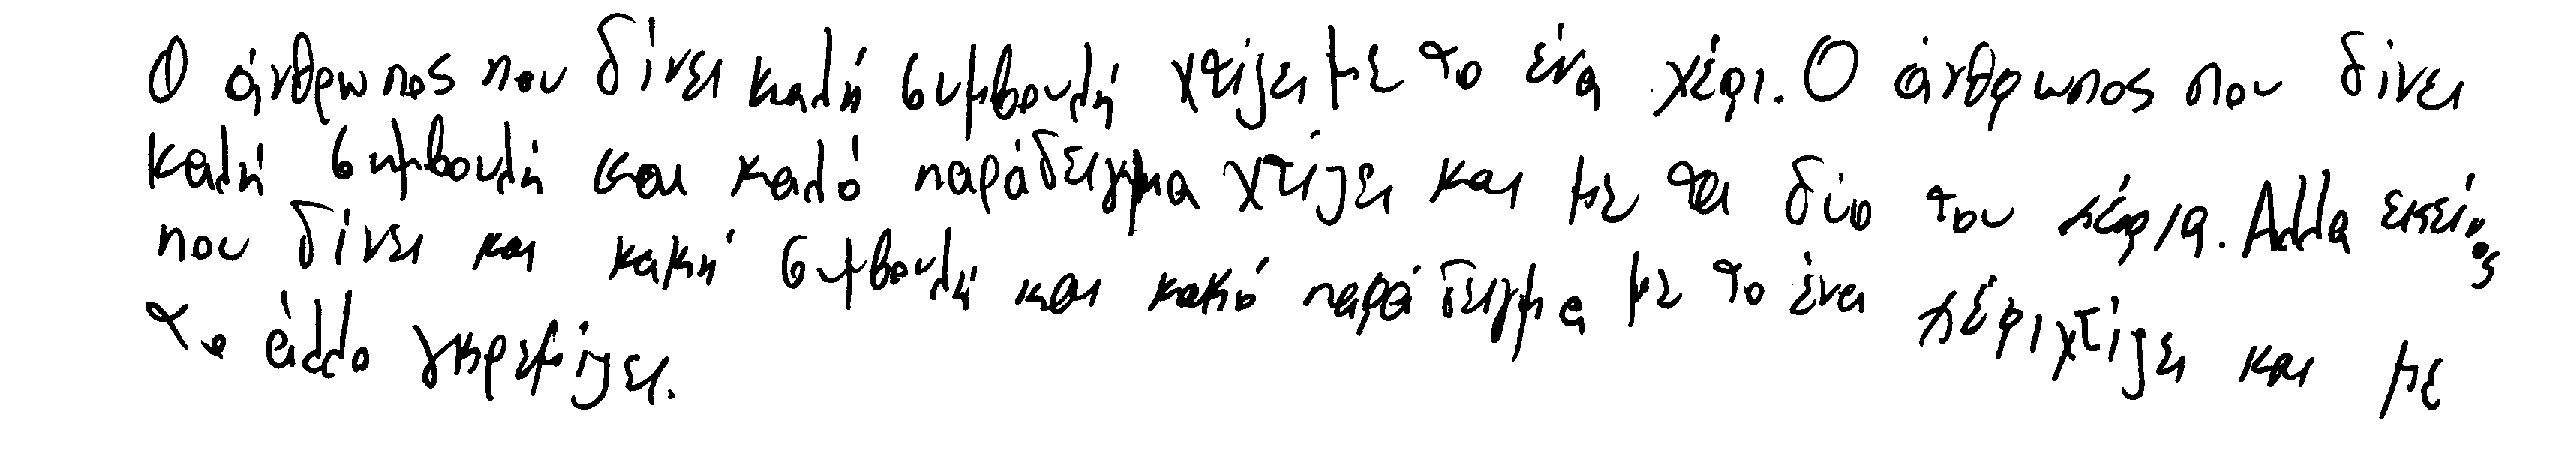 Ο άνθρωπος που δίνει καλή συμβουλή χτίζει με το ένα χέρι. Ο άνθρωπος που δίνει
καλή συμβουλή και καλό παράδειγμα χτίζει και με τα δύο του χέρια. Αλλα εκείνος
που δίνει και κακή συμβουλή και κακό παράδειγμα με το ένα χέρι χτίζει και με
το άλλο γκρεμίζει.